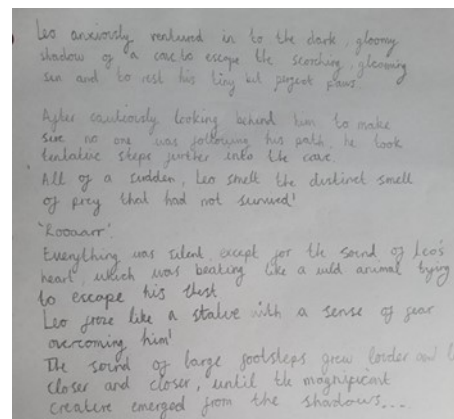 Leo anxiously ventured in to the dark, gloomy
shadow of a cave to escape the scorching, gleaming
sun and to rest his tiny but perfect paws.
After cautiously looking behind him to make
sure no one was following his path, he took
tentative steps further into the cave.
All of a sudden, Leo smelt the distinct smell
of prey that had not survived!
'Rooaarr'.
Everything was silent, except for the sound of Leo's
heart, which was beating like a wild animal trying
to escape his chest.
Leo froze like a statue with a sense of fear
overcoming him!
The sound of large footsteps grew louder and
closer and closer, until the magnificent
creature emerged from the shadows....